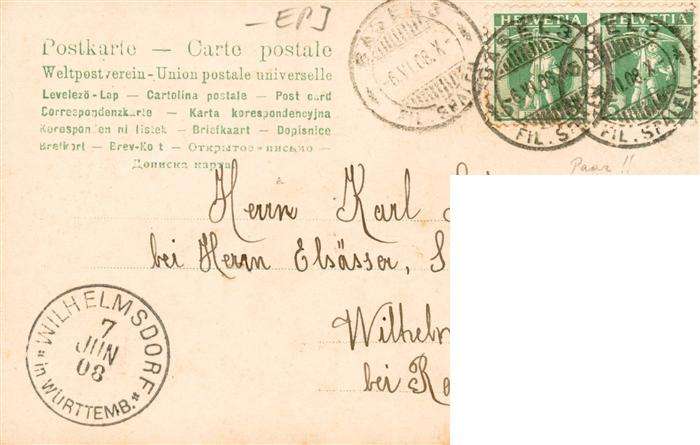 EPJ
Postkarte — Carte postale
Weltpostverein - Union postale universelle
Levelező-Lap — Cartolina postale — Post card
Correspondenzkarte — Karta korespondencyjna
Korespondenční lístek — Briefkaart — Dopisnice
Brefkort — Brev-Kort — Открытое письмо —
Дописна карта
HELVETIA HELVETIA
BASEL 3
6.VI.08.X-
FIL. SPALEN
BASEL 3
6.VI.08.X-
FIL. SPALEN
VI.08.X-
FIL. SPALEN
Paar !!
Herrn Karl
bei Herrn Elsässer, S
Wilhelm
bei Ra
WILHELMSDORF
7
JUN
08
* in WÜRTTEMB. *